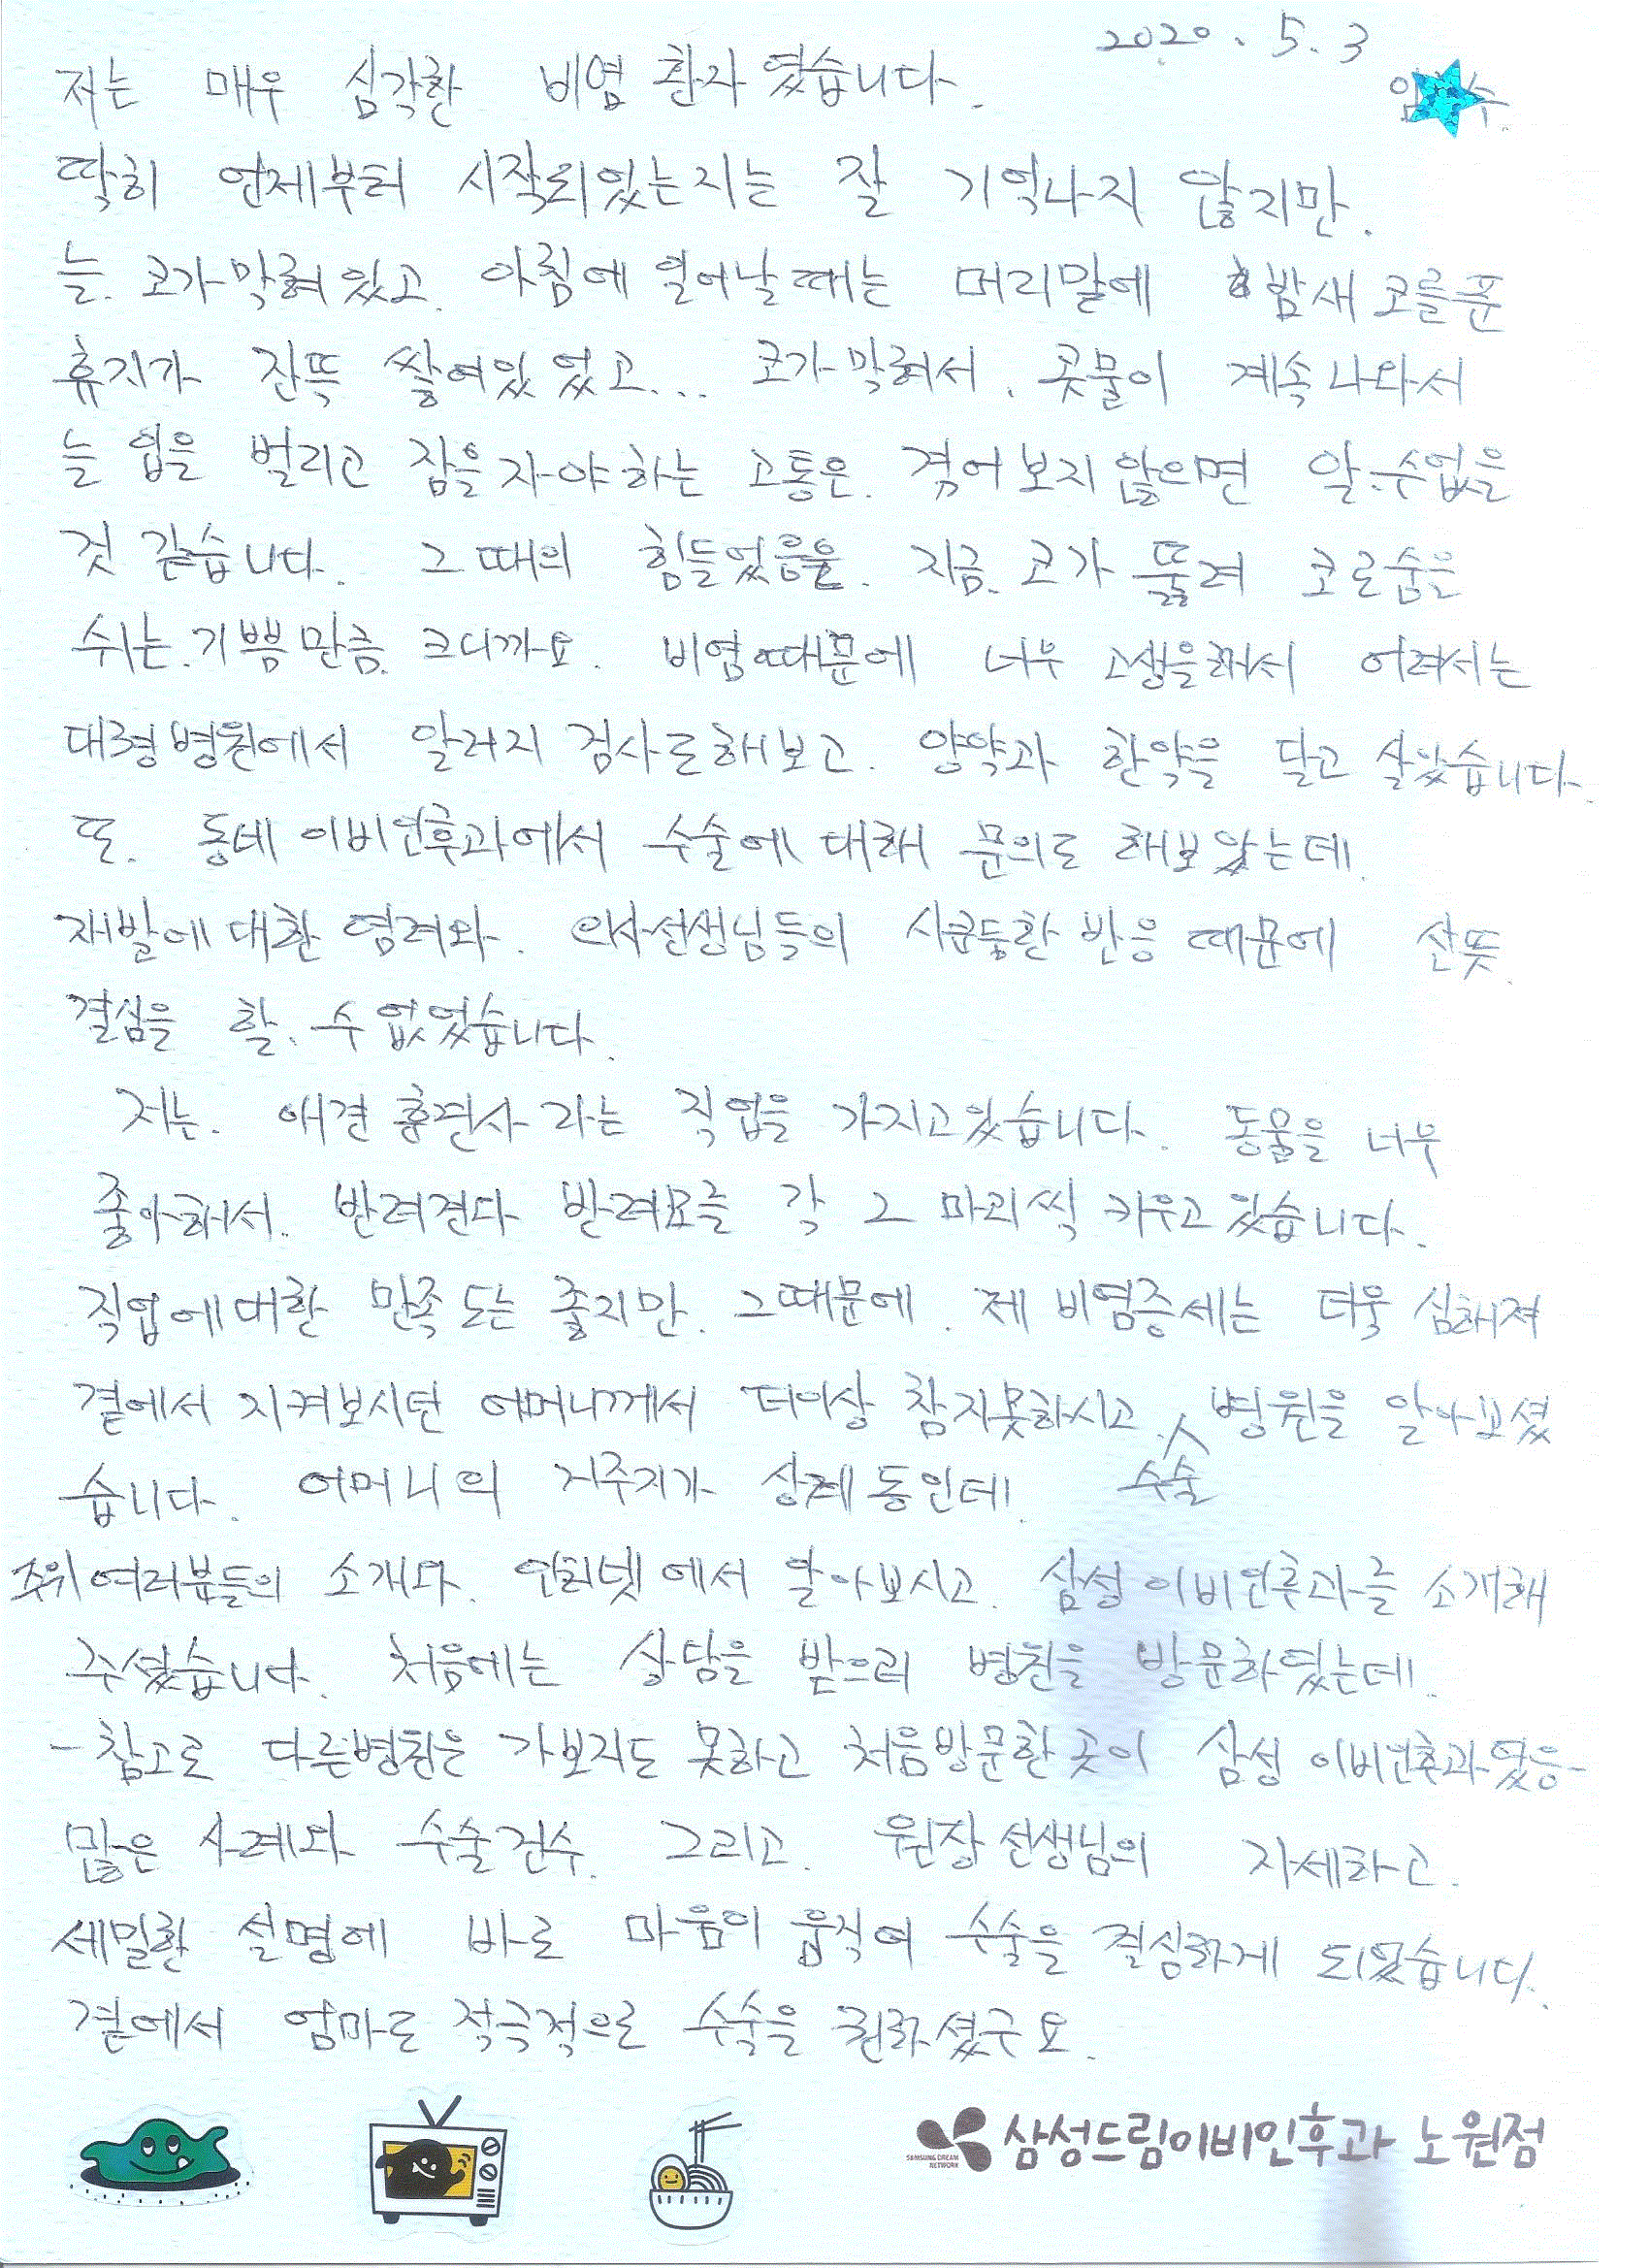 2020. 5. 3
저는 매우 심각한 비염 환자였습니다.
임 수.
딱히 언제부터 시작되있는지는 잘 기억나지 않지만.
늘. 코가막혀있고. 아침에 일어날때는 머리말에 밤새코를푼
휴지가 잔뜩 쌓여있었고... 코가막혀서. 콧물이 계속나와서
늘 입을 벌리고 잠을자야하는 고통은. 겪어보지않으면 알.수없을
것 같습니다. 그때의 힘들었음을. 지금. 코가 뚫려 코로숨을
쉬는.기쁨만큼. 크니까요. 비염때문에 너무 고생을해서 어려서는
대형병원에서 알러지 검사도해보고. 양약과 한약을 달고 살았습니다.
또. 동네이비인후과에서 수술에 대해 문의도 해보았는데.
재발에대한 염려와. 의사선생님들의 시큰둥한반응때문에 선뜻.
결심을 할.수없었습니다.
저는. 애견훈련사라는 직업을 가지고있습니다. 동물을 너무
좋아해서. 반려견과 반려묘를 각 2마리씩 키우고있습니다.
직업에대한 만족도는 좋지만. 그때문에. 제 비염증세는 더욱 심해져
곁에서 지켜보시던 어머니께서 더이상 참지못하시고. 병원을 알아보셨
습니다. 어머니의 거주지가 상계동인데. 수술
주위여러분들의 소개와. 인터넷에서 알아보시고. 삼성이비인후과를 소개해
주셨습니다. 처음에는 상담을 받으러 병원을 방문하였는데.
-참고로 다른병원은 가보지도 못하고 처음방문한곳이 삼성이비인후과였음-
많은 사례와 수술건수. 그리고. 원장선생님의 자세하고.
세밀한 설명에 바로 마음이 움직여 수술을 결심하게 되었습니다.
곁에서 엄마도 적극적으로 수술을 권하셨구요.
SAMSUNG DREAM NETWORK 삼성드림이비인후과 노원점